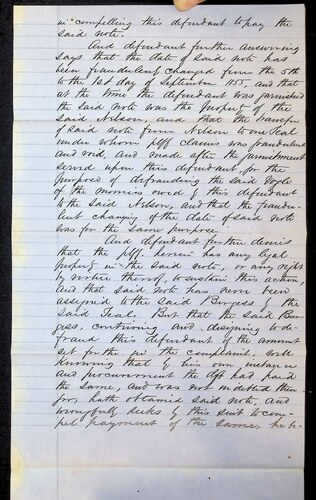 in compelling this defendant to pay the
said note.
And defendant further answering
says that the date of said note has
been fraudulently changed from the 5th
to the 1st day of September 1855, and that
at the time the defendant was garnisheed
the said note was the property of the
said Nelson, and that the transfer
of said note from Nelson to one Teal
under whom plff claims was fraudulent
and void, and made after the garnishment
served upon this defendant, for the
purpose of defrauding the said
of the monies owed by this defendant
to the said Nelson, and that the fraudu-
lent changing of the date of said note
was for the same purpose.
And defendant further denies
that the plff. herein has any legal
property in the said note, or any right
by virtue thereof, to sustain this action,
and that said note has never been
assigned to the said Burgess by the
said Teal. But that the said Bur-
gess, contriving and designing to de-
fraud this defendant of the amount
set forth in the complaint, well
knowing that by his own instance
and procurement the dft had paid
the same, and was not indebted there-
for, hath obtained said note, and
wrongfully seeks by this suit to com-
pel payment of the same, he be-